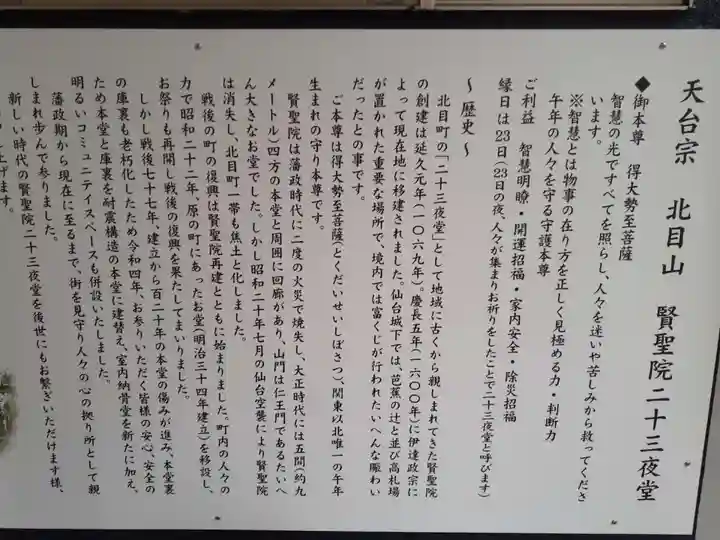 天台宗　北目山　賢聖院二十三夜堂
◆御本尊　得大勢至菩薩
智慧の光ですべてを照らし、人々を迷いや苦しみから救ってくださ
います。
※智慧とは物事の在り方を正しく見極める力・判断力
午年の人々を守る守護本尊
ご利益　智慧明瞭・開運招福・家内安全・除災招福
縁日は23日(23日の夜、人々が集まりお祈りをしたことで二十三夜堂と呼びます)
～歴史～
北目町の「二十三夜堂」として地域に古くから親しまれてきた賢聖院
の創建は延久元年(一〇六九年)。慶長五年(一六〇〇年)に伊達政宗に
よって現在地に移建されました。仙台城下では、芭蕉の辻と並び高札場
が置かれた重要な場所で、境内では富くじが行われたいへんな賑わい
だったとの事です。
ご本尊は得大勢至菩薩(とくだいせいしぼさつ)、関東以北唯一の午年
生まれの守り本尊です。
賢聖院は藩政時代に二度の火災で焼失し、大正時代には五間(約九
メートル)四方の本堂と周囲に回廊があり、山門は仁王門であるたいへ
ん大きなお堂でした。しかし昭和二十年七月の仙台空襲により賢聖院
は消失し、北目町一帯も焦土と化しました。
戦後の町の復興は賢聖院再建とともに始まりました。町内の人々の
力で昭和二十二年、原の町にあったお堂(明治三十四年建立)を移設し、
お祭りも再開し戦後の復興を果たしてまいりました。
しかし戦後七十七年、建立から百二十年の本堂の傷みが進み、本堂裏
の庫裏も老朽化したため令和四年、お参りいただく皆様の安心、安全の
ため本堂と庫裏を耐震構造の本堂に建替え、室内納骨堂を新たに加え、
明るいコミュニテイスペースも併設いたしました。
藩政期から現在に至るまで、街を見守り人々の心の拠り所として親
しまれ歩んで参りました。
新しい時代の賢聖院二十三夜堂を後世にもお繋ぎいただけます様、
し上げます。